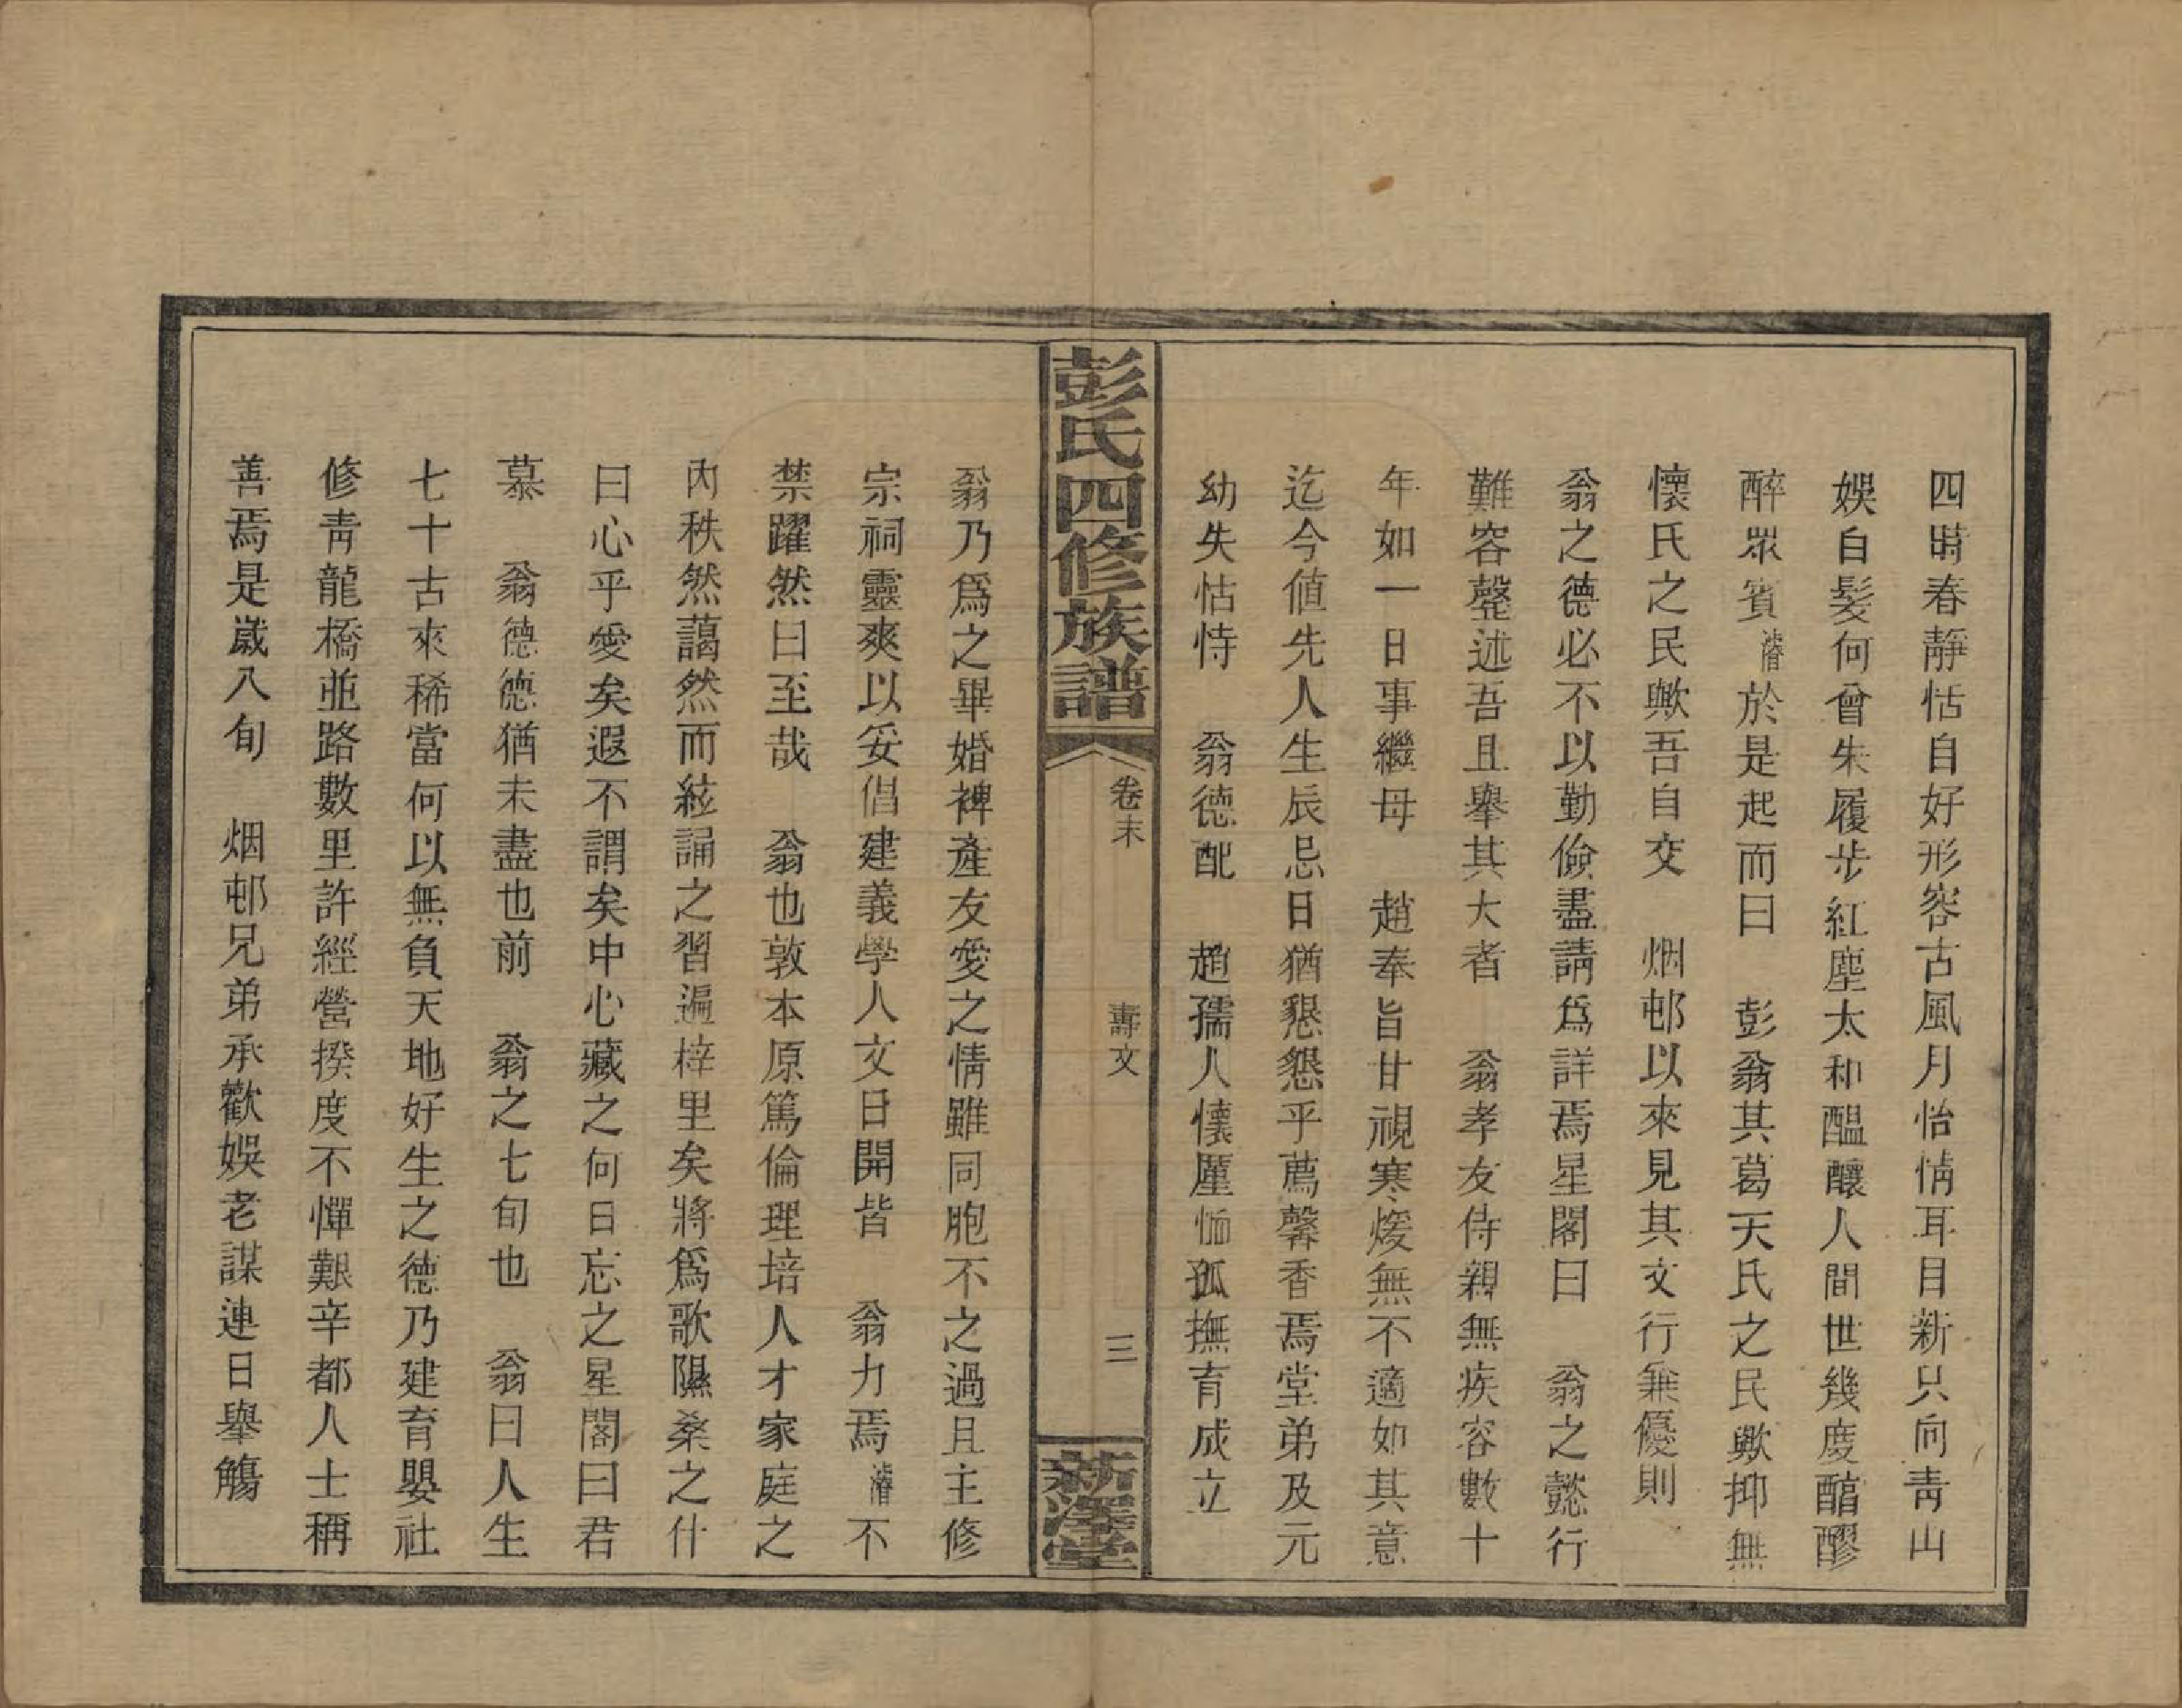 四時春靜恬自好形容古風月怡情耳目新只向靑山
娛白髮何曾朱履步紅塵太和醞釀人間世幾度醕醪
醉衆賓濬於是起而曰　彭翁其葛天氏之民歟抑無
懷氏之民歟吾自交　烟邨以來見其文行兼優則
翁之德必不以勤儉盡請爲詳焉星閣曰　翁之懿行
難容罄述吾且舉其大者　翁孝友侍親無疾容數十
年如一日事繼母　趙奉旨甘視寒煖無不適如其意
迄今値先人生辰忌日猶懇懇乎薦馨香焉堂弟及元
幼失怙恃　翁德配　趙孺人懷厪恤孤撫育成立
彭氏四修族譜
卷末
壽文
三
新澤堂
翁乃爲之畢婚裨產友愛之情雖同胞不之過且主修
宗祠靈爽以妥倡建義學人文日開皆　翁力焉濬不
禁躍然曰至哉　翁也敦本原篤倫理培人才家庭之
內秩然藹然而絃誦之習遍梓里矣將爲歌隰桑之什
曰心乎愛矣遐不謂矣中心藏之何日忘之星閣曰君
慕　翁德德猶未盡也前　翁之七旬也　翁曰人生
七十古來稀當何以無負天地好生之德乃建育嬰社
修靑龍橋並路數里許經營揆度不憚艱辛都人士稱
善焉是歲八旬　烟邨兄弟承歡娛老謀連日舉觴